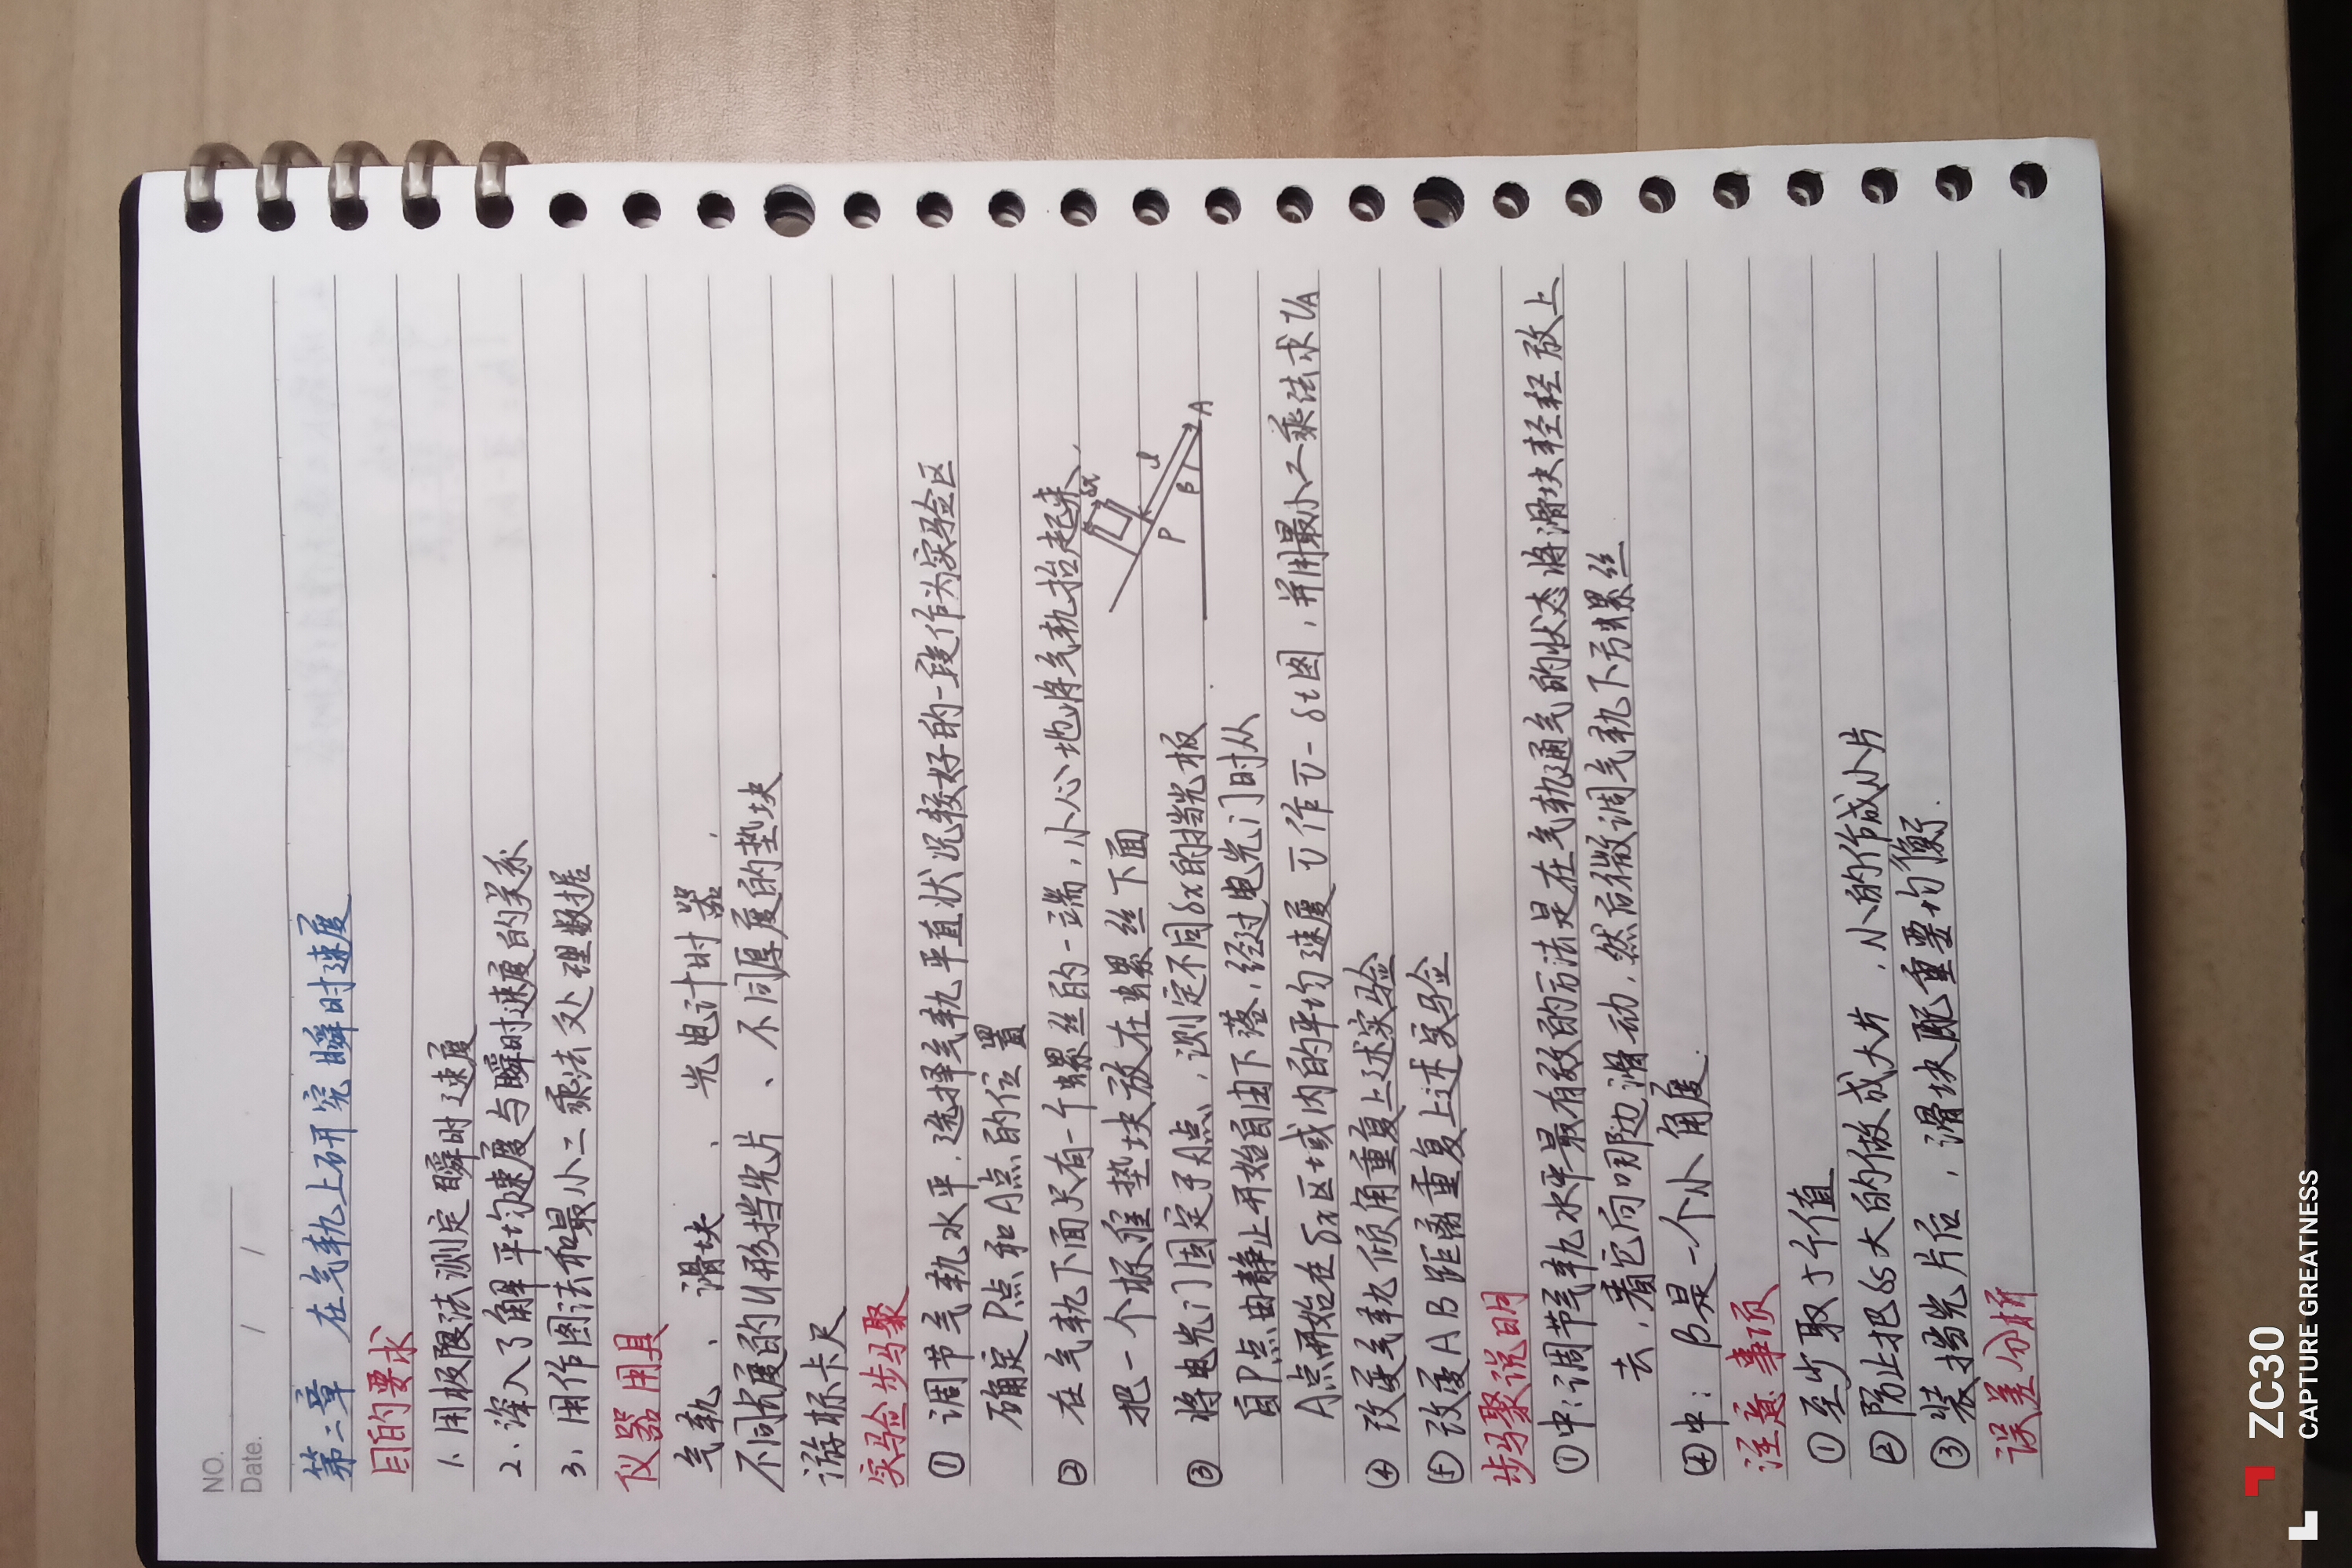 NO.
Date. / /
第二章 在气轨上研究瞬时速度
目的要求
1、用极限法测定瞬时速度
2、深入了解平均速度与瞬时速度的关系
3、用作图法和最小二乘法处理数据
仪器用具
气轨、滑块、光电计时器、
不同长度的U形挡光片、不同厚度的垫块
游标卡尺
实验步骤
① 调节气轨水平，选择气轨平直状况较好的一段作为实验区
确定P点和A点的位置
② 在气轨下面只有一个螺丝的一端，小心地将气轨抬起来，
把一个标准垫块放在螺丝下面
δx
P
β
l
A
③ 将电光门固定于A点，测定不同δx的挡光板
自P点由静止开始自由下落，经过电光门时从
A点开始在δx区域内的平均速度v̄作v̄-δt图，并用最小二乘法求VA
④ 改变气轨倾角重复上述实验
⑤ 改变AB距离重复上述实验
步骤说明
①中：调节气轨水平最有效的方法是在气轨通气的状态将滑块轻轻放上
去，看它向哪边滑动，然后微调气轨下方螺丝
④中：β是一个小角度.
注意事项
① 至少取5个值
② 防止把δs大的做成大片，小的作成小片
③ 装挡光片后，滑块配重要均衡.
误差分析
ZC30
CAPTURE GREATNESS